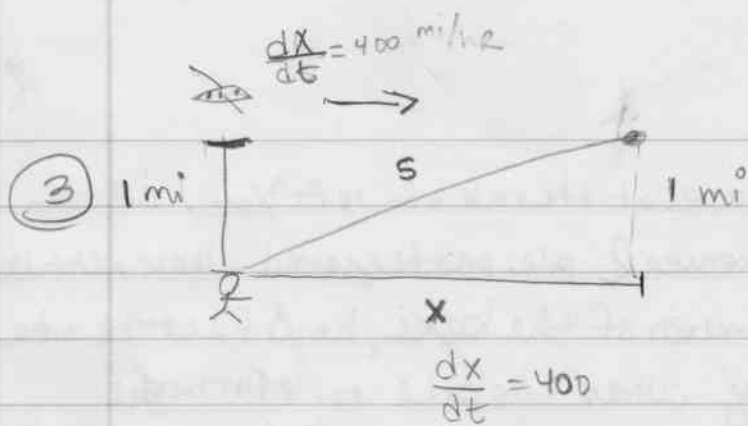 dx/dt = 400 mi/hr
3 1 mi s 1 mi
x
dx/dt = 400